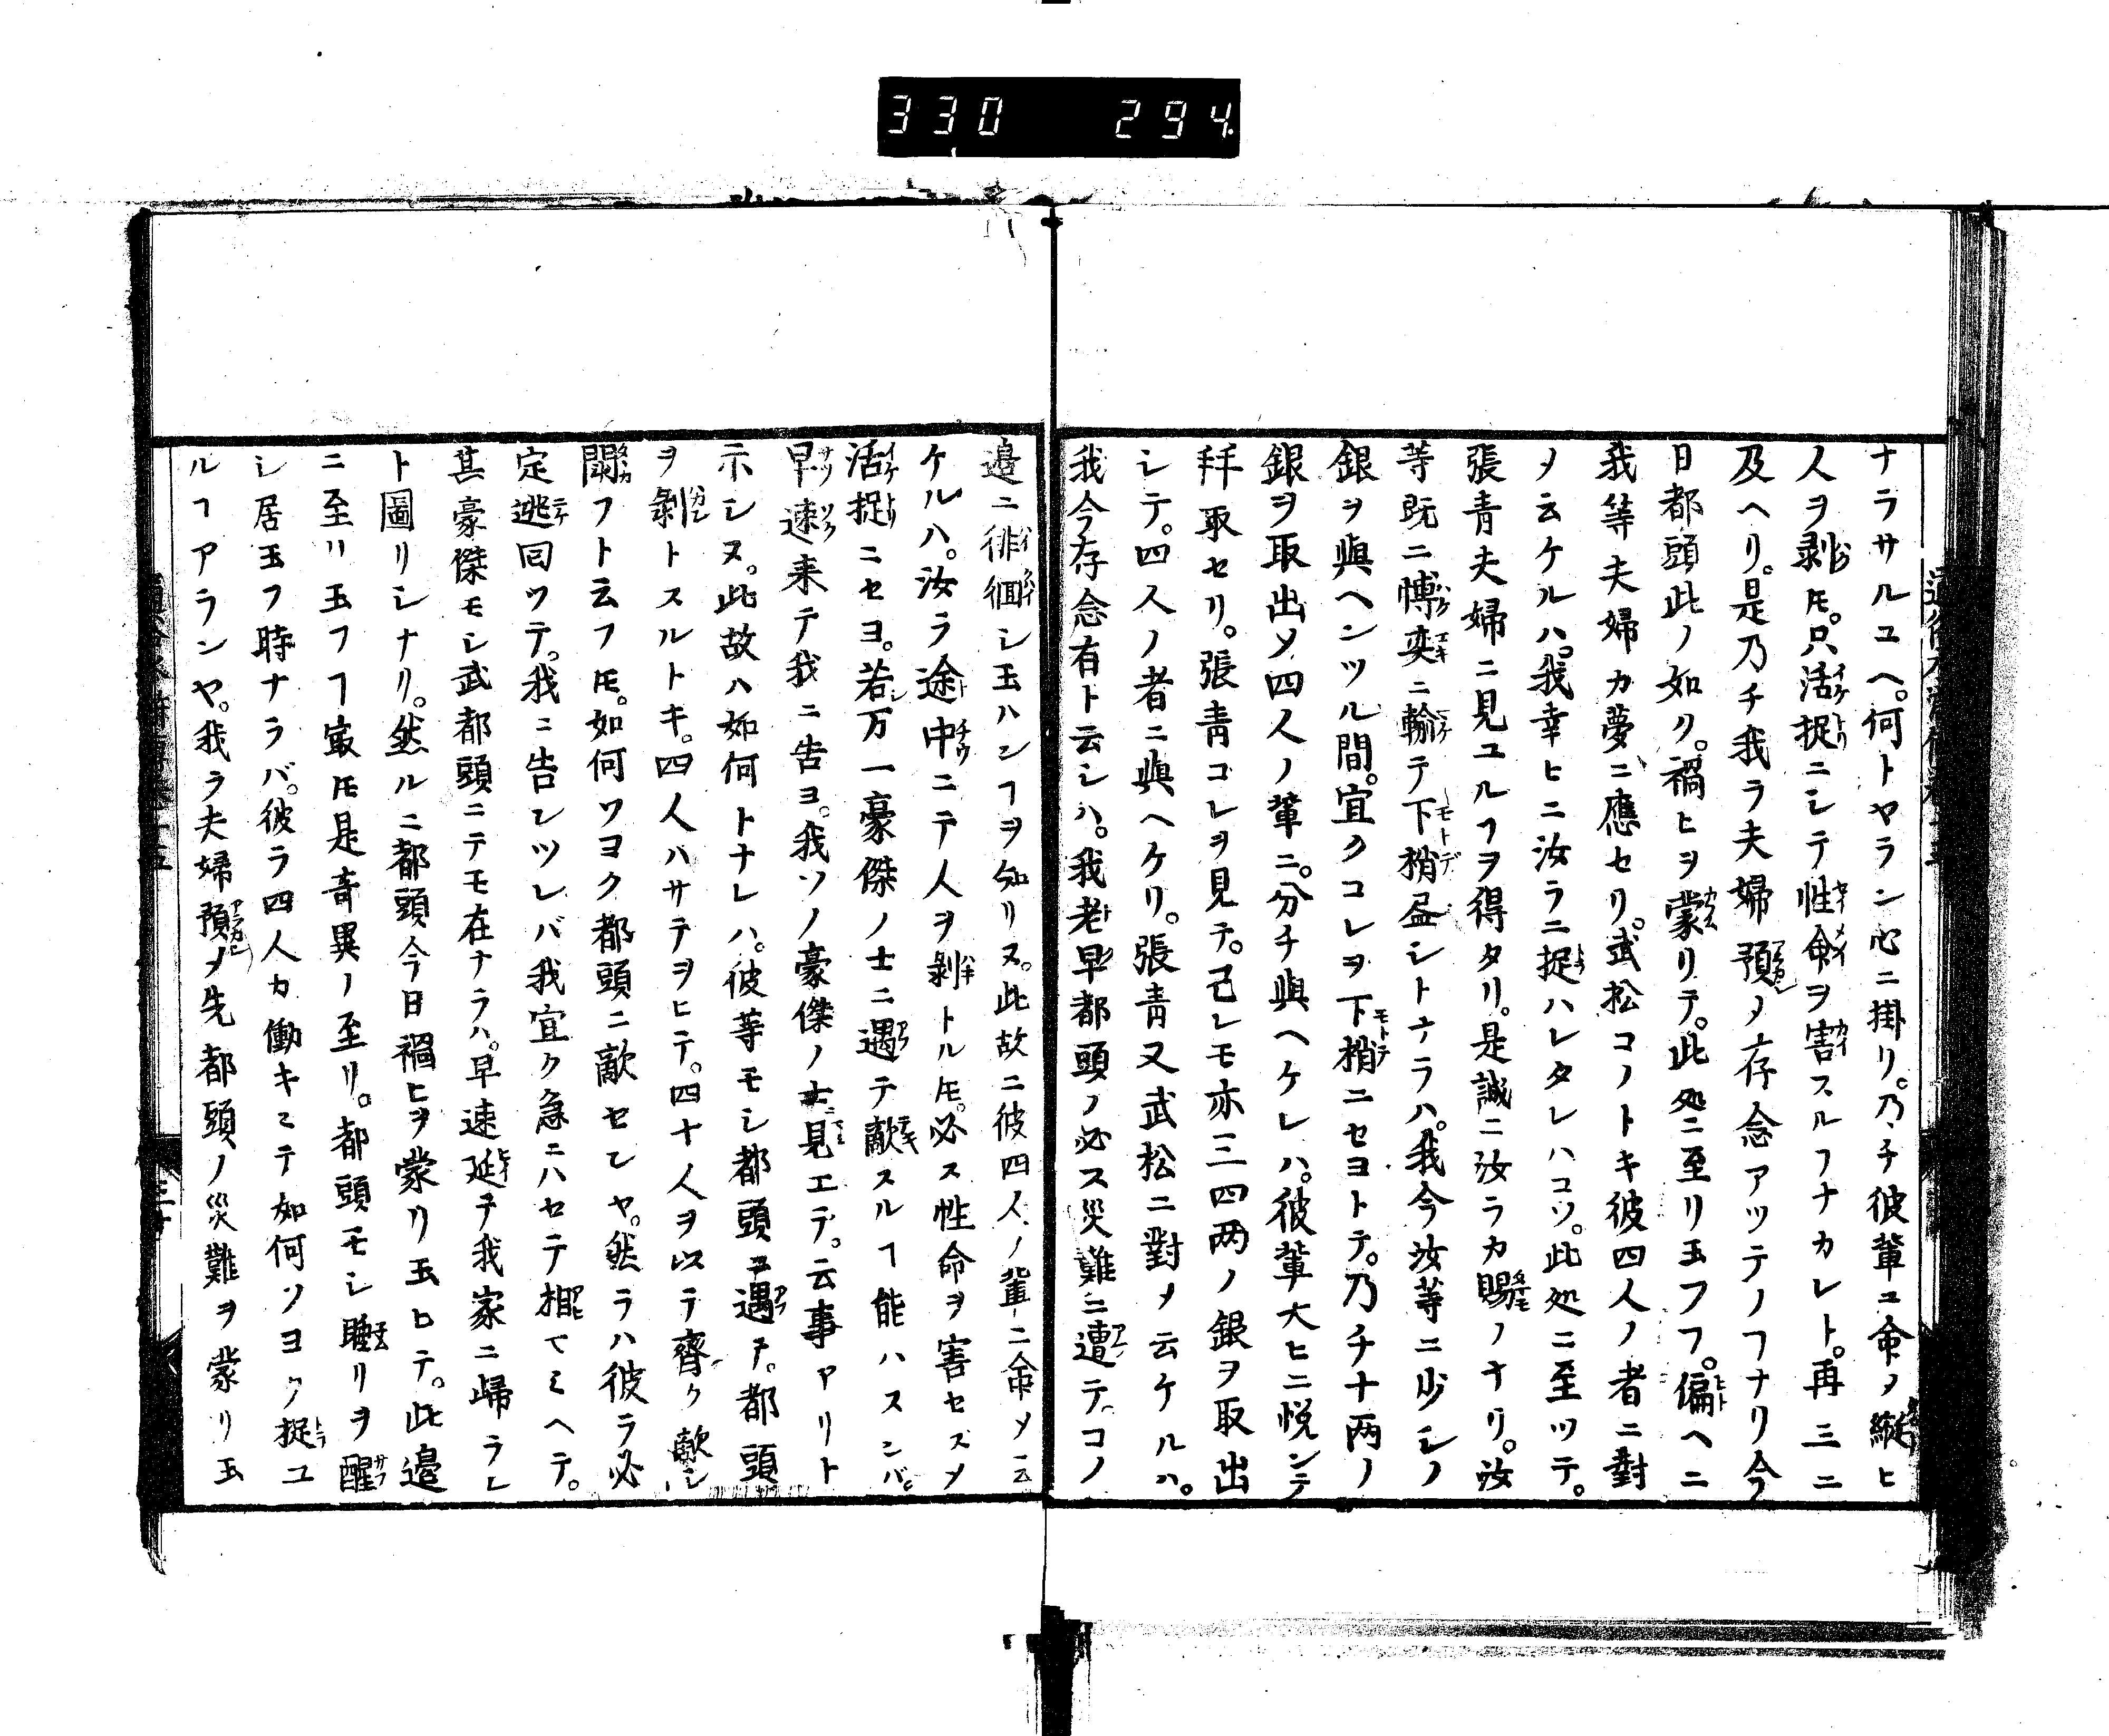 330 294
ナラサルユヘ。何トヤラン心ニ掛リ。乃チ彼輩ニ命ノ縦ヒ
人ヲ剥𪜈。只活捉ニシテ性命ヲ害スルヿナカレト。再三ニ
及ヘリ。是乃チ我ラ夫婦預メ存念アツテノヿナリ今
日都頭此ノ如ク。禍ヒヲ蒙リテ。此処ニ至リ玉フヿ。偏ヘニ
我等夫婦カ夢ニ應セリ。武松コノトキ彼四人ノ者ニ對
メ云ケルハ。我幸ヒニ汝ラニ捉ハレタレハコソ。此処ニ至ツテ。
張青夫婦ニ見ユルヿヲ得タリ。是誠ニ汝ラカ賜ノナリ。汝
等既ニ博奕ニ輸テ下梢尽シトナラハ。我今汝等ニ少シノ
銀ヲ與ヘンツル間。宜クコレヲ下梢ニセヨトテ。乃チ十両ノ
銀ヲ取出メ四人ノ輩ニ。分チ與ヘケレハ。彼輩大ヒニ悦ンテ
拜取セリ。張青コレヲ見テ。己レモ亦三四両ノ銀ヲ取出
シテ。四人ノ者ニ與ヘケリ。張青又武松ニ對メ云ケルハ。
我今存念有ト云シハ。我老早都頭ノ必ス災難ニ遭テコノ
邉ニ徘徊シ玉ハンヿヲ知リヌ。此故ニ彼四人ノ輩ニ命メ云
ケルハ。汝ラ途中ニテ人ヲ剥トル𪜈。必ス性命ヲ害セズメ
活捉ニセヨ。若万一豪傑ノ士ニ遇テ敵スルヿ能ハスンバ。
早速来テ我ニ告ヨ。我ソノ豪傑ノ士ニ見エテ。云事アリト
示シヌ。此故ハ如何トナレハ。彼等モシ都頭ニ遇テ。都頭
ヲ剥トスルトキ。四人ハサテヲヒテ。四十人ヲ以テ齊ク敵シ
闘フト云フ𪜈。如何ソヨク都頭ニ敵セレヤ。然ラハ彼ラ必
定逃回ツテ。我ニ告レツレバ我宜ク急ニハセテ相マミヘテ。
其豪傑モシ武都頭ニテモ在ナラハ。早速延テ我家ニ歸ラレ
ト圖リシナリ。然ルニ都頭今日禍ヒヲ蒙リ玉ヒテ。此邉
ニ至リ玉フヿ寂𪜈是奇異ノ至リ。都頭モシ睡リヲ醒
シ居玉フ時ナラバ。彼ラ四人カ働キニテ如何ソヨク捉ユ
ルヿアランヤ。我ラ夫婦預メ先都頭ノ災難ヲ蒙リ玉